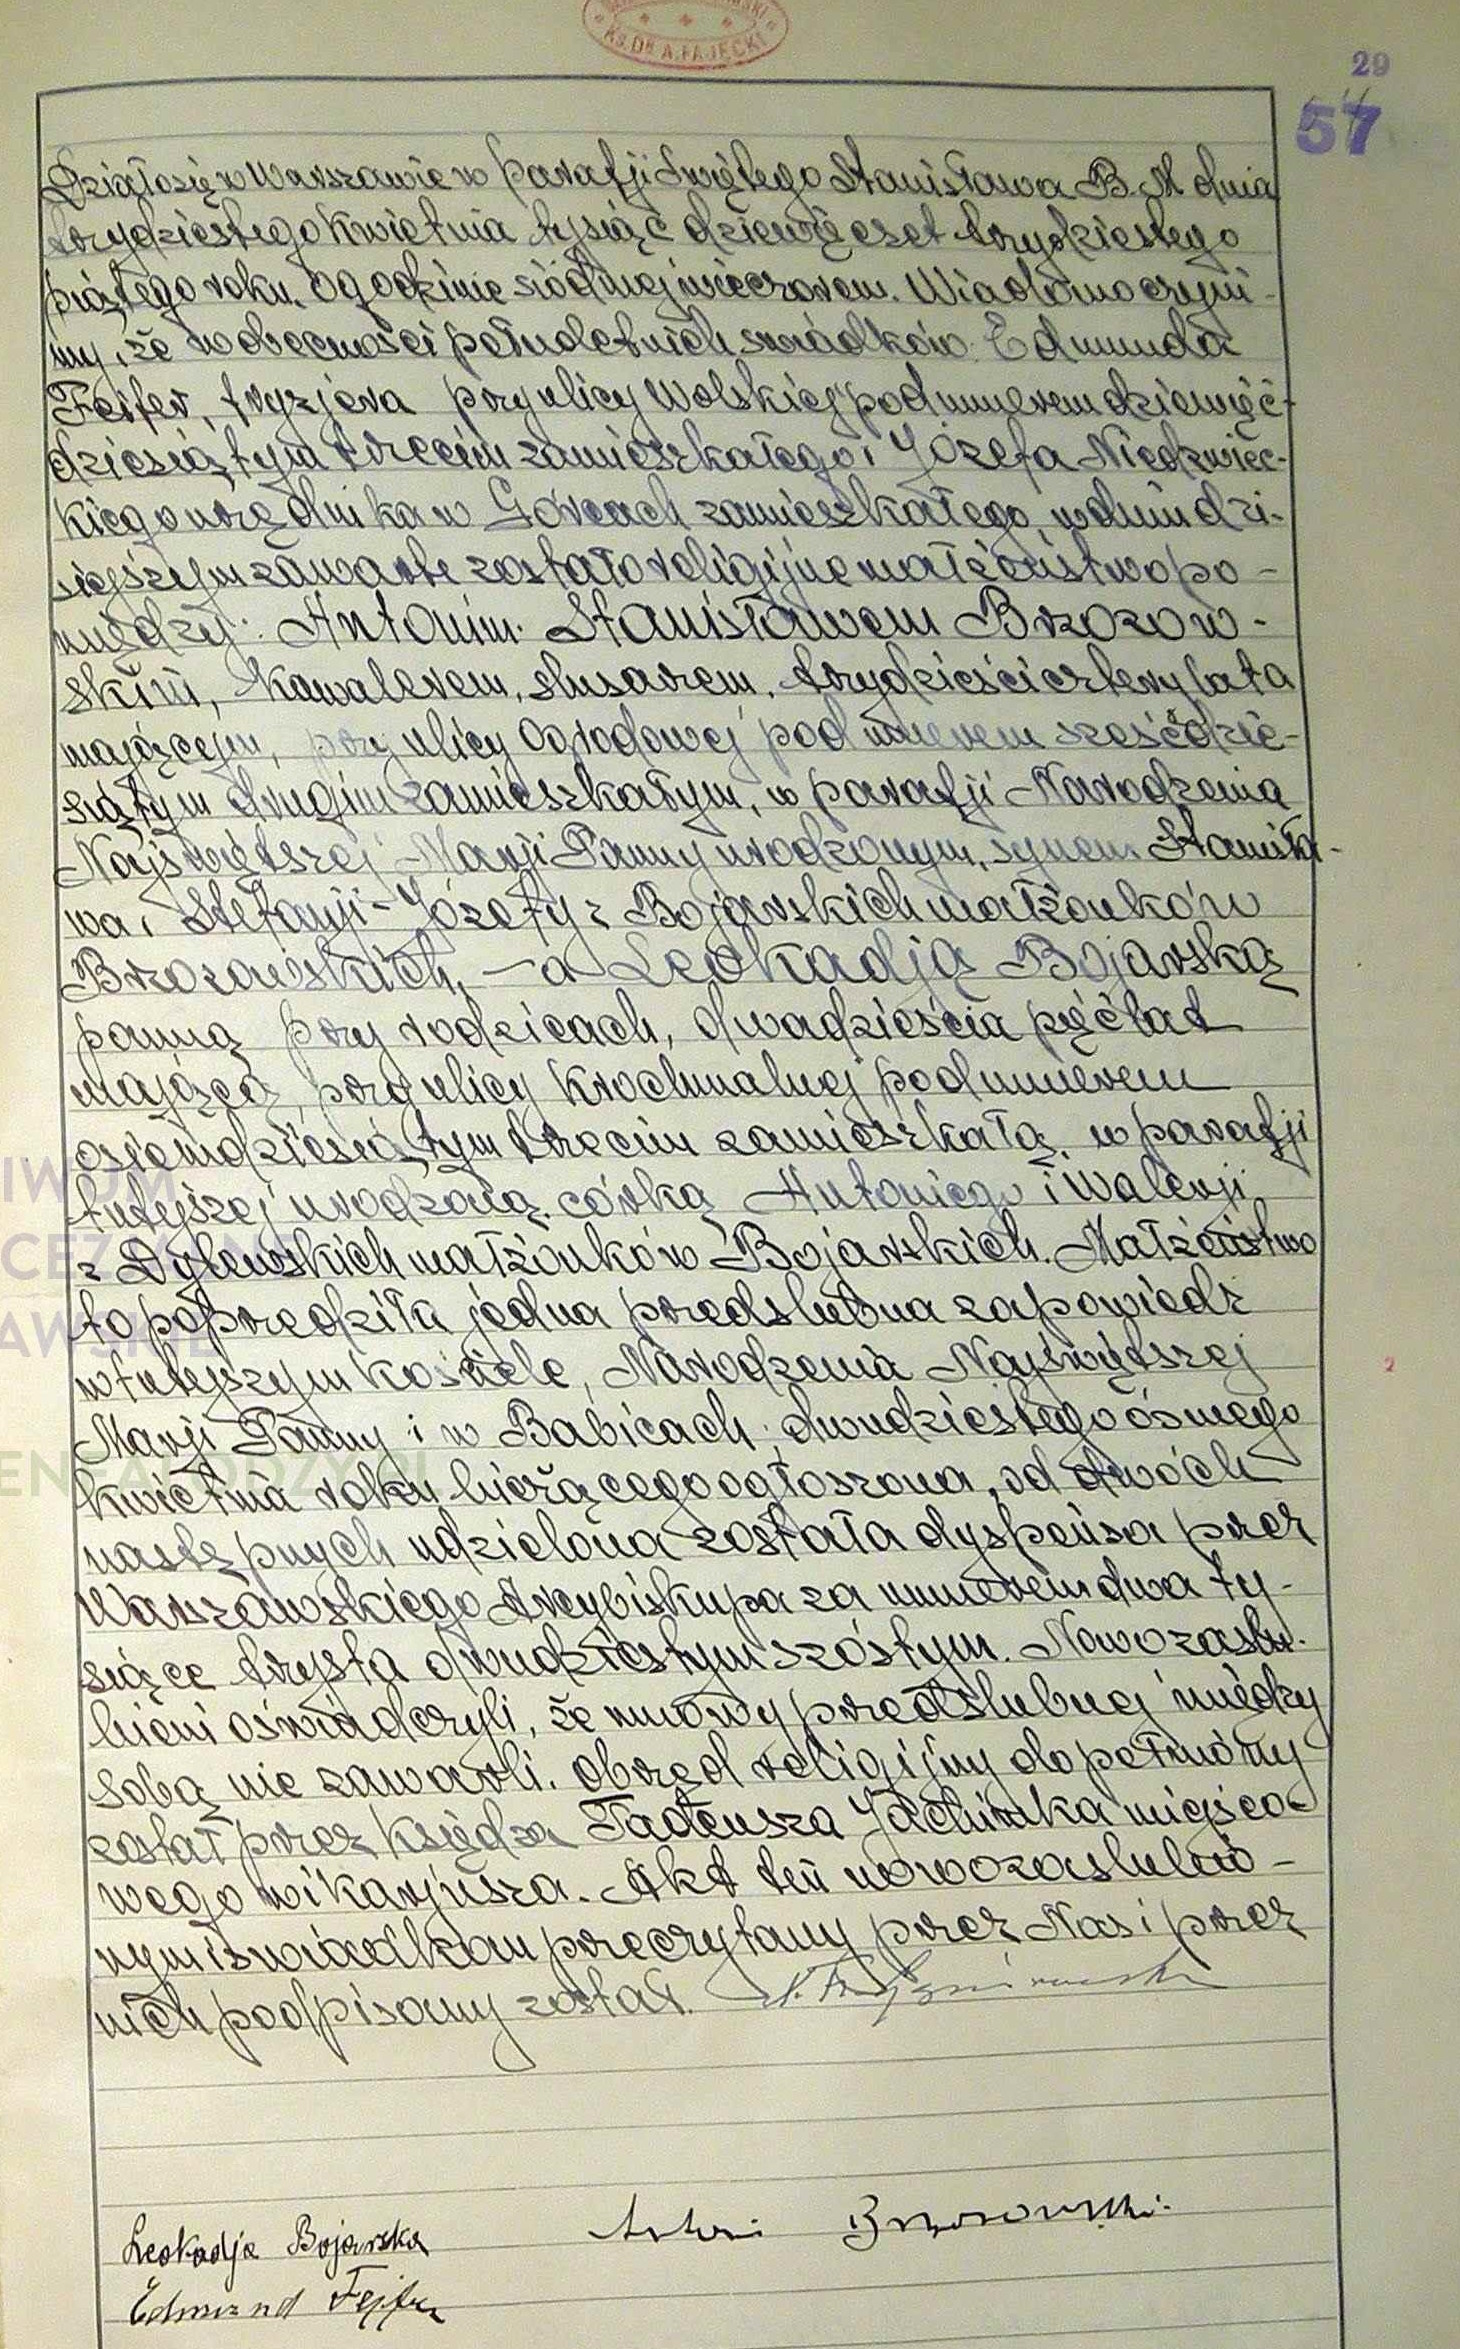 Ks. Dr. A. FAJĘCKI
29
57
Działo się w Warszawie w parafji Świętego Stanisława B. M dnia
trzydziestego kwietnia tysiąc dziewięćset trzydziestego
piątego roku, o godzinie siódmej wieczorem. Wiadomo czyni-
my, że w obecności pełnoletnich świadków: Edmunda
Fejfer, fryzjera przy ulicy Wolskiej pod numerem dziewięć-
dziesiątym trzecim zamieszkałego i Józefa Niedzwiec-
kiego urzędnika w Górcach zamieszkałego, w dniu dzi-
siejszym zawarte zostało religijne małżeństwo po-
między: Antonim Stanisławem Brzozow-
skim, kawalerem, ślusarem, trzydzieści cztery lata
mającym, przy ulicy Ogrodowej pod numerem sześćdzie-
siątym drugim zamieszkałym, w parafji Narodzenia
Najświętszej Marji Panny urodzonym, synem Stanisła-
wa i Stefanji-Józefy z Bojarskich małżonków
Brzozowskich, — a Leokadją Bojarską
panną przy rodzicach, dwadzieścia pięć lat
mającą, przy ulicy Krochmalnej pod numerem
osiemdziesiątym trzecim zamieszkałą, w parafji
tutejszej urodzoną, córką Antoniego i Walerji
z Dylewskich małżonków Bojarskich. Małżeństwo
to poprzedziła jedna przedślubna zapowiedź
w tutejszym kościele, Narodzenia Najświętszej
Marji Panny i w Babicach, dwudziestego ósmego
kwietnia roku bieżącego ogłoszona, od dwóch
następnych udzielona została dyspensa przez
Warszawskiego Arcybiskupa za numerem dwa ty-
siące trzysta dwudziestym szóstym. Nowozaślu-
bieni oświadczyli, że umowy przedślubnej między
sobą nie zawarli. Obrzęd religijny dopełniony
został przez księdza Tadeusza Jachimka miejsco-
wego wikarjusza. Akt ten nowozaślubio-
nym i świadkom przeczytany przez Nas i przez
nich podpisany został.
Leokadja Bojarska Antoni Brzozowski
Edmund Fejfer